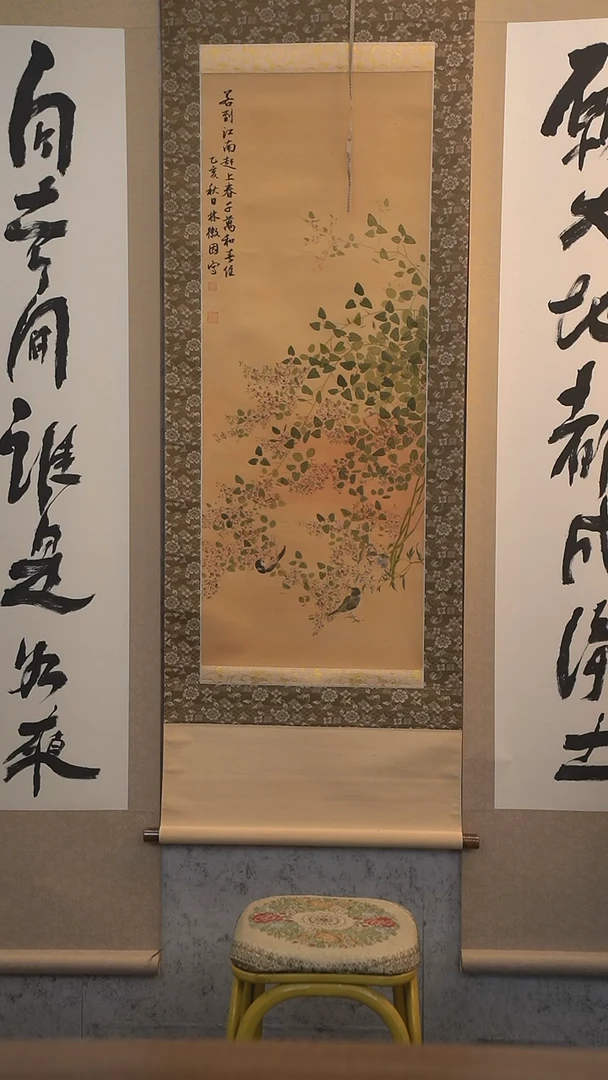 願大地都成淨土
若到江南赶上春千萬和春住
乙亥秋日林徽因寫
自
間誰是如來